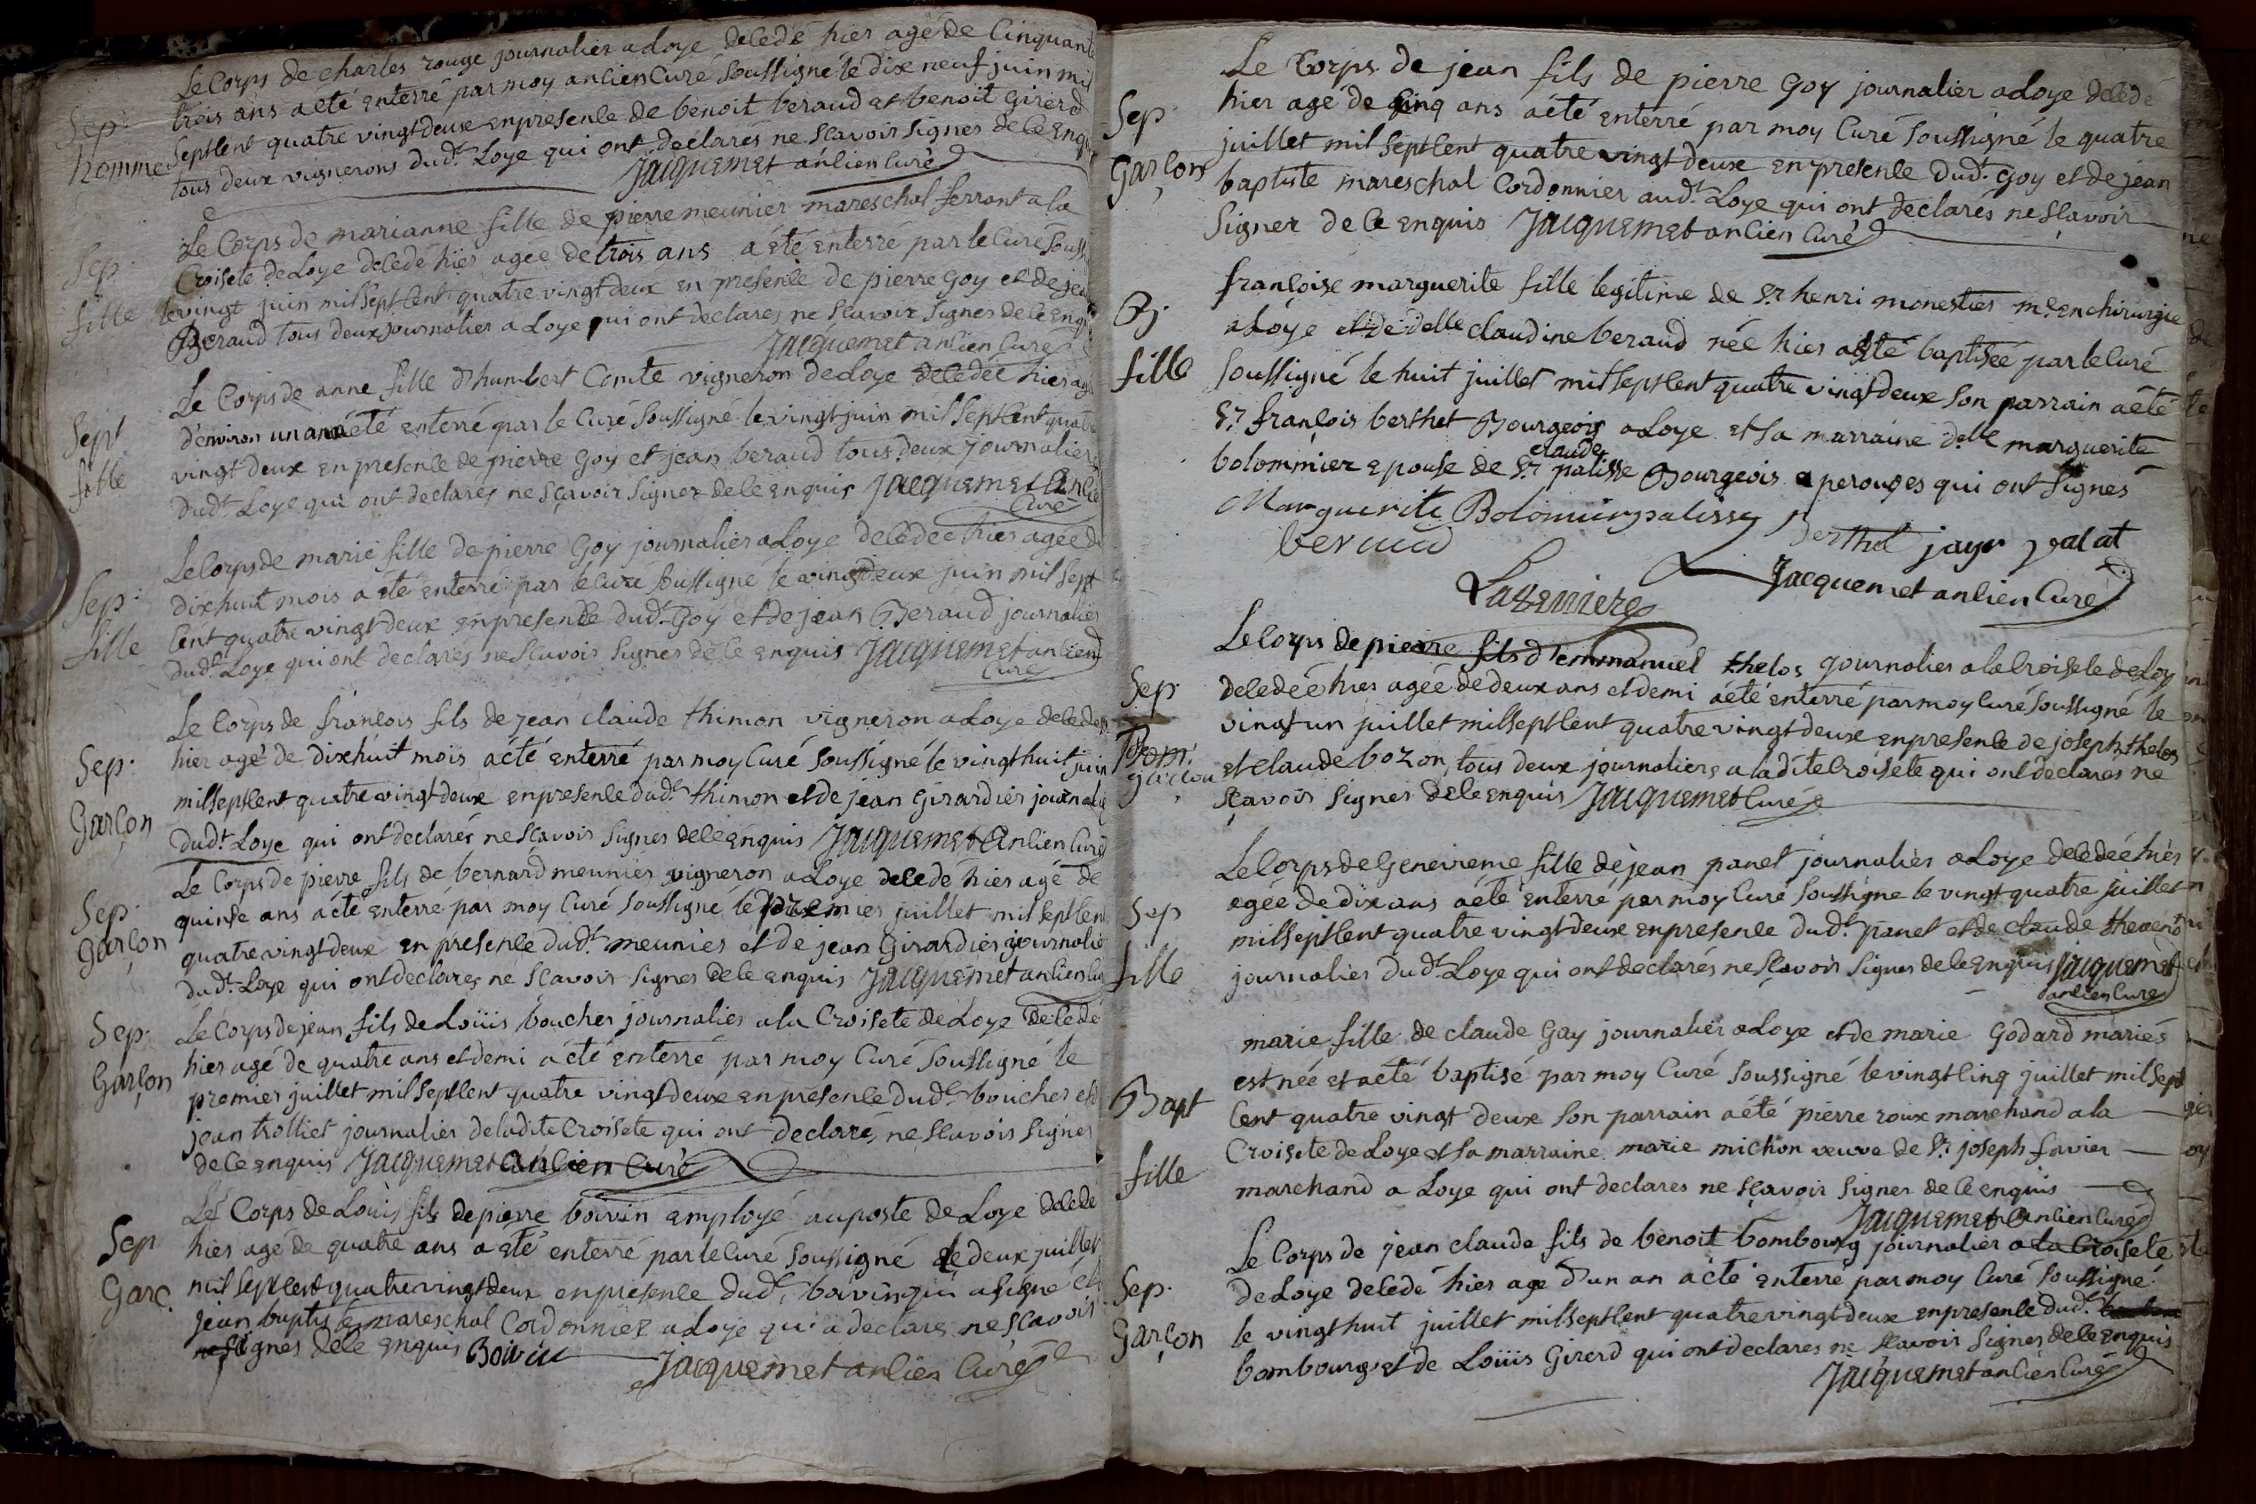 Le Corps de charles rouge journalier a Loye decedé hier agé de Cinquante
Sep:
trois ans a été enterré par moy ancien Curé Soussigné le dix neuf juin mil
homme
Septcent quatre vingt deux en presence de benoit beraud et benoit Girerd
tous deux vignerons dud.t Loye qui ont declarés ne Scavoir Signer de ce Enquis
Jacquemet ancien Curé
Le Corps de marianne fille de pierre meunier mareschal ferrant a la
Sep:
Croisete de Loye decedé hier agée de trois ans a été enterré par le Curé Souss
fille
le vingt juin mil Sept cent quatre vingt deux en presence de pierre Goy et de jean
Beraud tous deux journalier a Loye qui ont declares ne Scavoir Signer de ce Enquis
Jacquemet ancien Curé
Le Corps de anne fille d'humbert Comte vigneron de Loye decedée hier agé
Sept
d'environ un an a été enterré par le Curé Soussigné le vingt juin mil Septcent quatre
fille
vingt deux en presence de pierre Goy et jean beraud tous deux journaliers
Dud.t Loye qui ont declarés ne Sçavoir Signer de ce enquis Jacquemet ancien
Curé
Le Corps de marie fille de pierre Goy journalier a Loye decedée hier agée de
Sep:
dixhuit mois a été enterré par le Curé Soussigné le vingtdeux juin mil Sept
fille
Cent quatre vingt deux en presence dud.t Goy et de jean Beraud journalier
dud.t Loye qui ont declarés ne Scavoir Signer de ce enquis Jacquemet ancien
Curé
Le Corps de françois fils de jean claude thimon vigneron a Loye decedé
Sep:
hier agé de dixhuit mois a été enterré par moy Curé Soussigné le vingthuit juin
Garçon
mil Septcent quatre vingt deux en presence dud.t thimon et de jean Girardier journalier
Dud.t Loye qui ont declarés ne Scavoir Signer de ce enquis Jacquemet ancien Curé
Le Corps de pierre fils de bernard meunier vigneron a Loye decedé hier agé de
Sep:
quinse ans a été enterré par moy Curé Soussigné le premier juillet mil Septcent
Garçon
quatre vingt deux en presence dud.t meunier et de jean Girardier journalier
dud.t Loye qui ont declares ne Scavoir Signer de ce enquis Jacquemet ancien Curé
Sep:
Le Corps de jean fils de Loüis boucher journalier a la Croisete de Loye decedé
Garçon
hier agé de quatre ans et demi a été enterré par moy Curé Soussigné le
premier juillet mil Septcent quatre vingt deux en presence dud.t boucher et
jean trolliet journalier de ladite Croisete qui ont declaré ne Scavoir Signer
de ce enquis Jacquemet ancien Curé
Le Corps de Loüis fils de pierre boivin employé au poste de Loye decedé
Sep
hier agé de quatre ans a été enterré par le Curé Soussigné le deux juillet
Garç.
mil Septcent quatre vingt deux en presence dud.t boivin qui a Signé et
jean baptiste mareschal Cordonnier a Loye qui a declaré ne Scavoir
Signer de ce enquis Boivin
Jacquemet ancien Curé
Le Corps de jean fils de pierre Goy journalier a Loye decedé
Sep
hier agé de cinq ans a été enterré par moy Curé Soussigné le quatre
Garçon
juillet mil Septcent quatre vingt deux en presence dud.t Goy et de jean
baptiste mareschal Cordonnier aud.t Loye qui ont declarés ne Sçavoir
Signer de ce enquis Jacquemet ancien Curé
françoise marguerite fille legitime de S.r henri monestier m.e en chirurgie
B:
a Loye et de delle claudine beraud née hier a été baptisée par le Curé
fille
Soussigné le huit juillet mil Septcent quatre vingt deux Son parrain a été
S.r françois berthet Bourgeois a Loye et Sa marraine delle marguerite
bolommier epouse de S.r claude palisse Bourgeois a perouges qui ont Signés
Marguerite Bolomier palisse Berthet jayr
beraud
Jacquemet ancien Curé
Le Corps de pierre fils d'emmanuel thelos journalier a la Croisete de Loy
Sep:
decedée hier agée de deux ans et demi a été enterré par moy Curé Soussigné le
vingt un juillet mil Septcent quatre vingt deux en presence de joseph thelos
garçon
et claude bozon tous deux journaliers a la dite Croisete qui ont declarés ne
Sçavoir Signer de ce enquis Jacquemet Curé
Le Corps de Genevieve fille de jean panet journalier a Loye decedée hier
Sep
agée de dix ans a été enterré par moy Curé Soussigné le vingt quatre juillet
mil Septcent quatre vingt deux en presence dud.t panet et de claude thevenet
fille
journalier Dud.t Loye qui ont declarés ne Sçavoir Signer de ce enquis Jacquemet
ancien Curé
marie fille de claude Gay journalier a Loye et de marie Godard mariés
est née et a été baptisé par moy Curé Soussigné le vingt cinq juillet mil Sept
Bapt
Cent quatre vingt deux Son parrain a été pierre roux marchand a la
Croisete de Loye et Sa marraine marie michon veuve de S.r joseph favier
fille
marchand a Loye qui ont declares ne Scavoir Signer de ce enquis
Jacquemet ancien Curé
Le Corps de jean claude fils de benoit bombourg journalier a la Croisete
Sep:
de Loye decedé hier agé d'un an a été enterré par moy Curé Soussigné
Garçon
le vingt huit juillet mil Septcent quatre vingt deux en presence dud.t
bombourg et de Loüis Girerd qui ont declares ne Scavoir Signer de ce enquis
Jacquemet ancien Curé